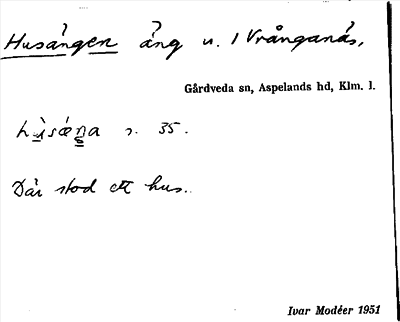 Husängen äng u. 1 Vrånganäs.
Gårdveda sn, Aspelands hd, Klm. l.
s. 35.
Där stod ett hus.
Ivar Modéer 1951